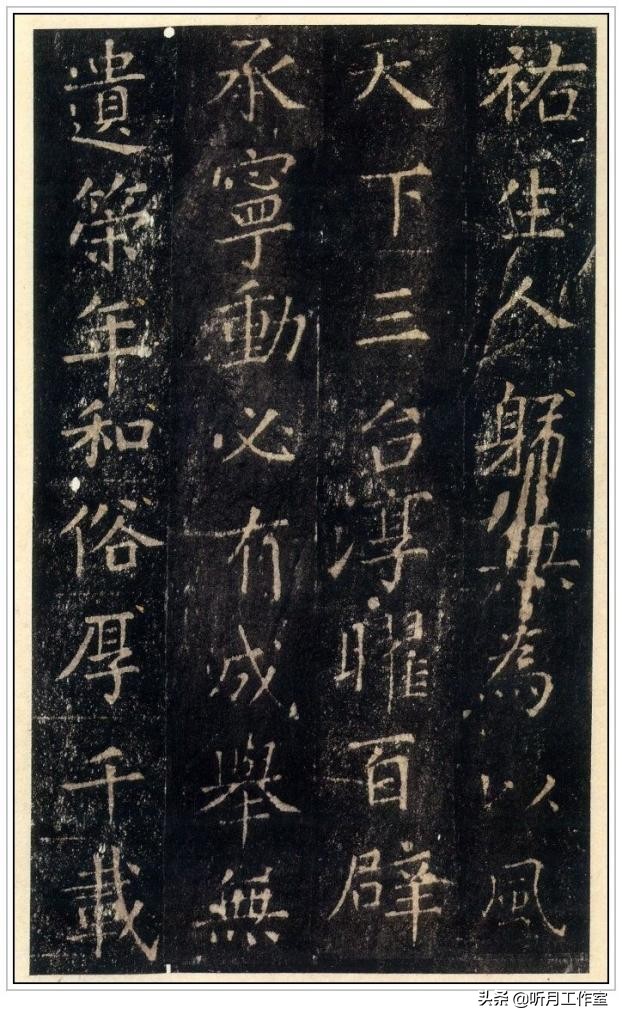 祐生人躬無為以風
天下三台淳曜百辟
承寧動必有成舉無
遺策年和俗厚千載
头条 @听月工作室